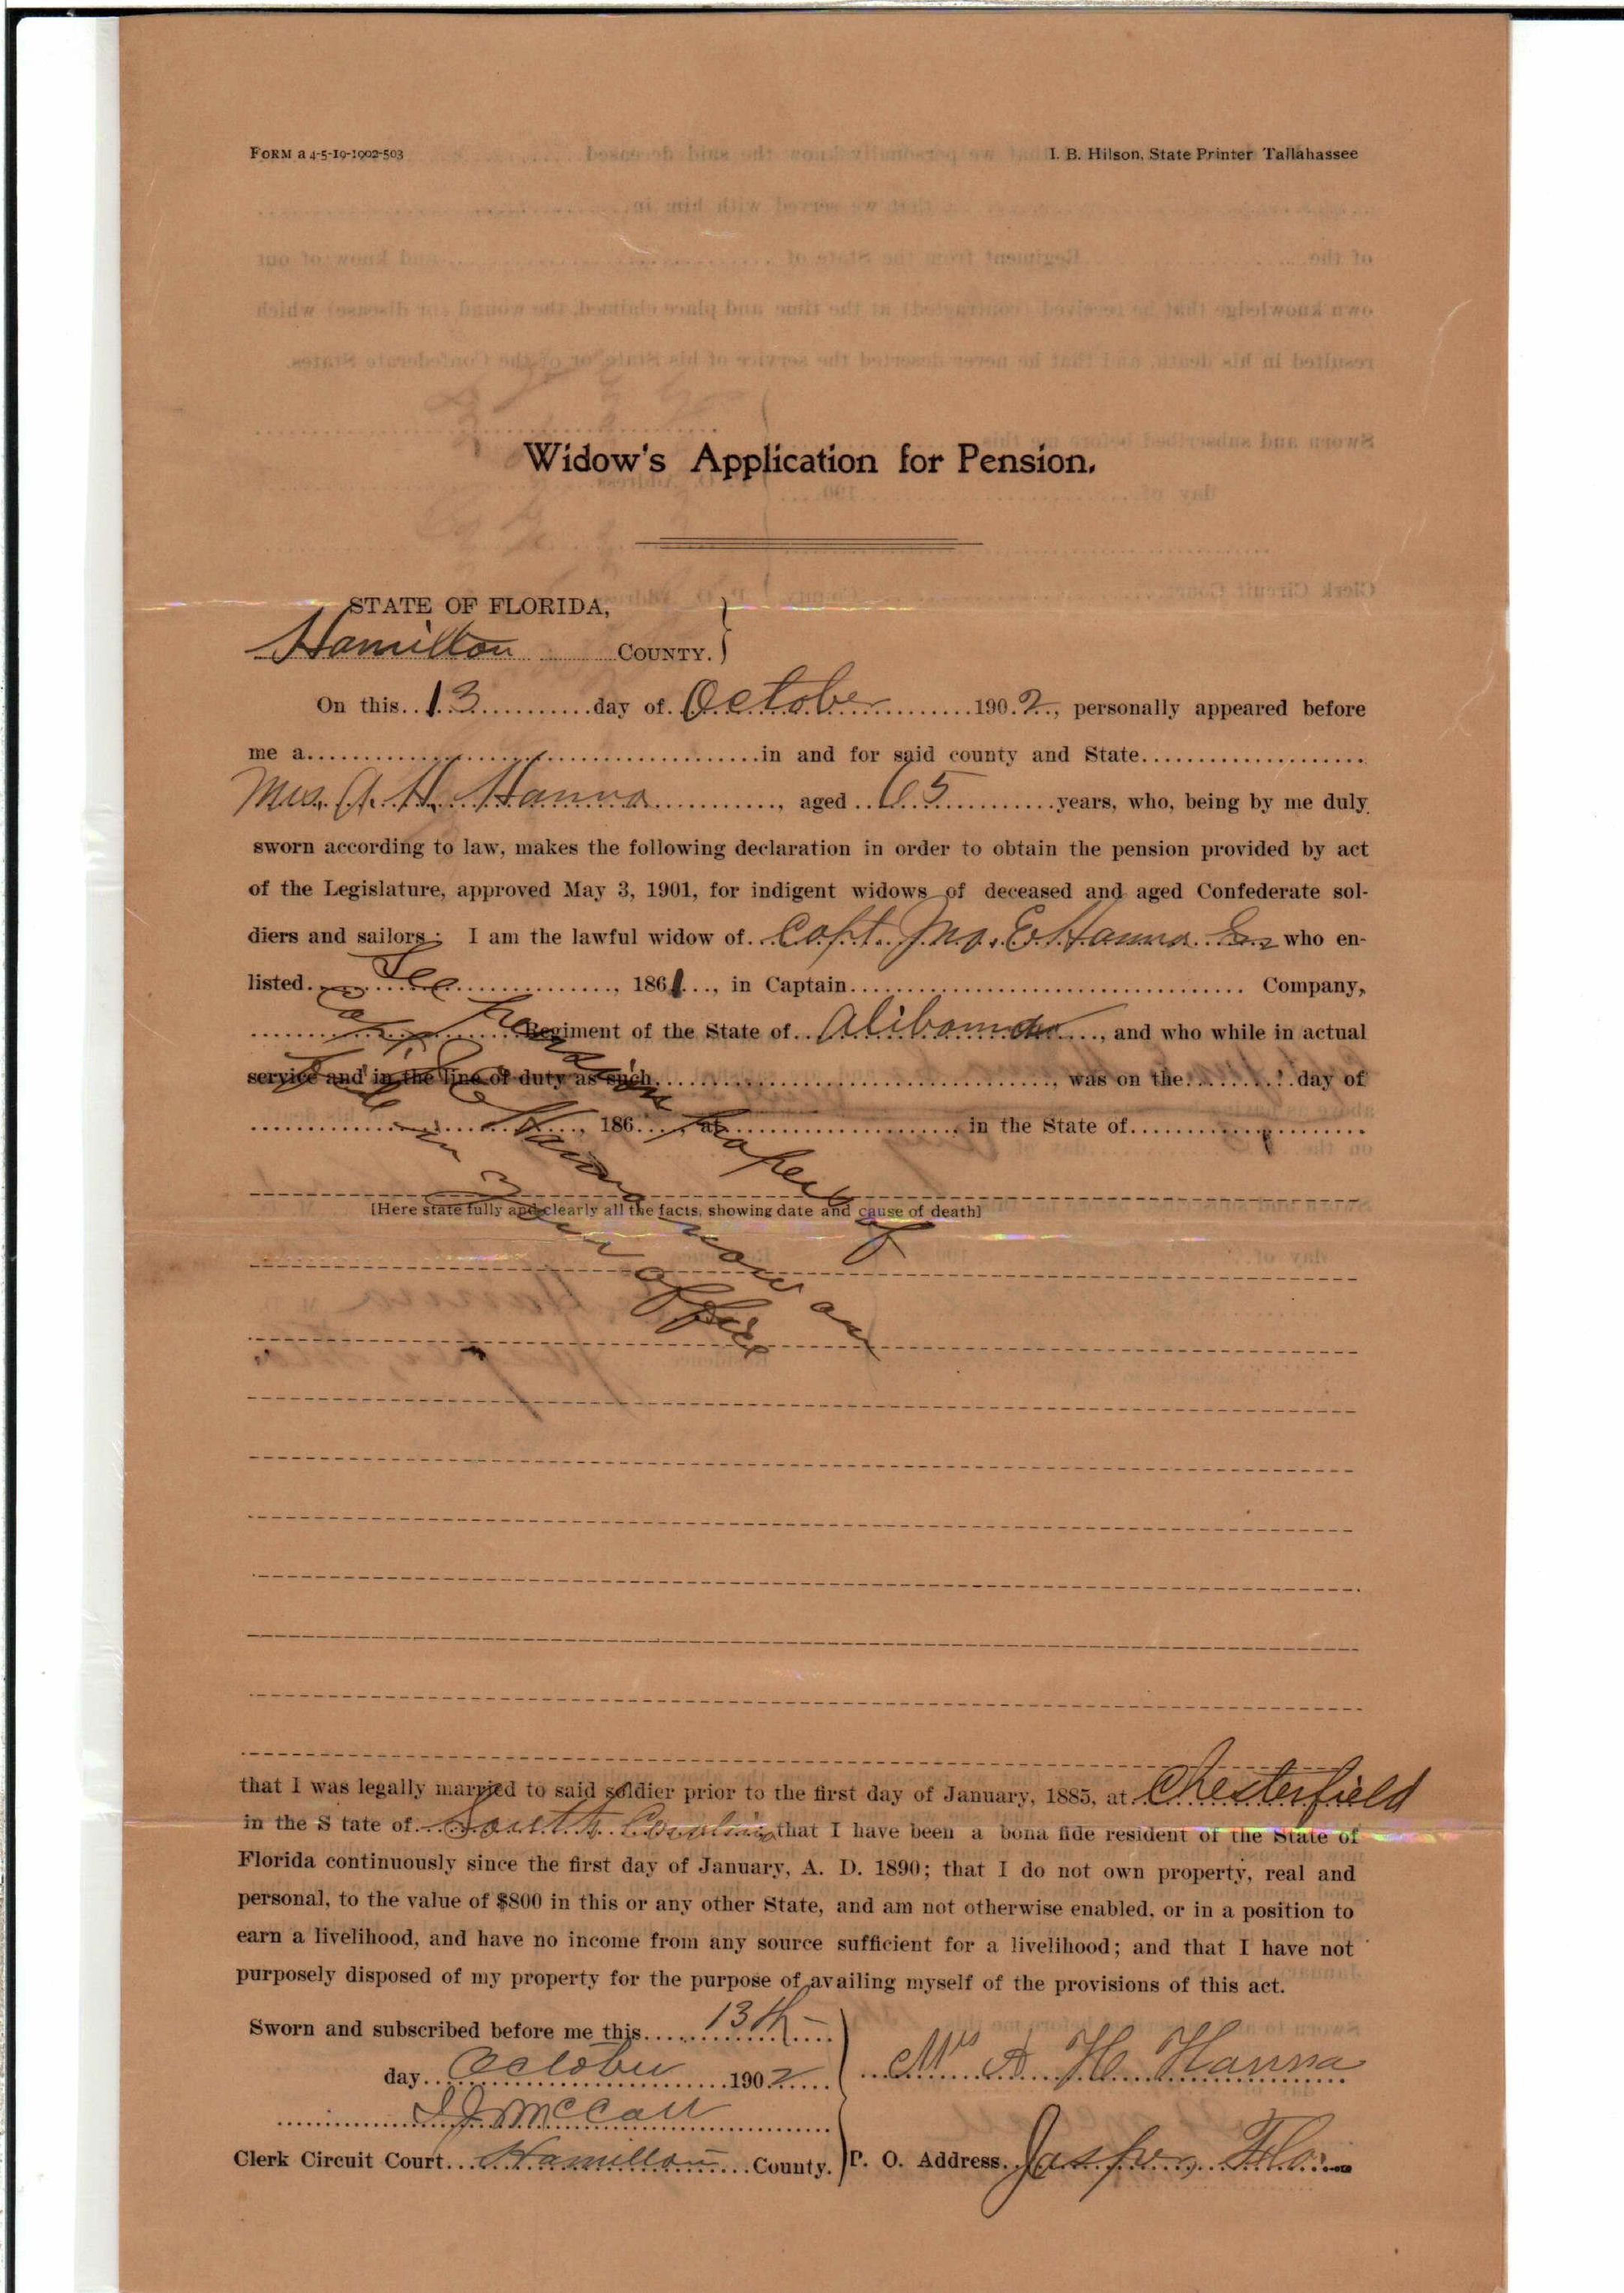 FORM a 4-5-10-1902-503 I. B. Hilson, State Printer Tallahassee
Widow's Application for Pension.
STATE OF FLORIDA,
Hamilton COUNTY.
On this 13 day of October 1902, personally appeared before
me a in and for said county and State
Mrs. A. H. Hanna, aged 65 years, who, being by me duly
sworn according to law, makes the following declaration in order to obtain the pension provided by act
of the Legislature, approved May 3, 1901, for indigent widows of deceased and aged Confederate sol-
diers and sailors; I am the lawful widow of Capt. Jno. E. Hanna who en-
listed, 1861, in Captain Company,
Regiment of the State of Alibama, and who while in actual
service and in the line of duty as such, was on the day of
, 186, at in the State of
See pension papers of
Capt Jno E Hanna now on
file in your office
[Here state fully and clearly all the facts, showing date and cause of death]
that I was legally married to said soldier prior to the first day of January, 1885, at Chesterfield
in the S tate of South Carolina that I have been a bona fide resident of the State of
Florida continuously since the first day of January, A. D. 1890; that I do not own property, real and
personal, to the value of $800 in this or any other State, and am not otherwise enabled, or in a position to
earn a livelihood, and have no income from any source sufficient for a livelihood; and that I have not
purposely disposed of my property for the purpose of availing myself of the provisions of this act.
Sworn and subscribed before me this 13th
day October 1902 Mrs A H Hanna
J J McCall
Clerk Circuit Court Hamilton County. P. O. Address. Jasper, Fla.